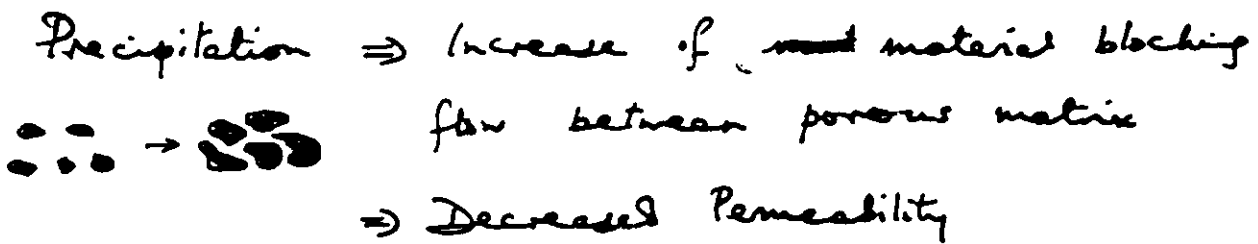 Precipitation ⇒ Increase of material blocking
flow between porous matrix
→
⇒ Decreased Permeability